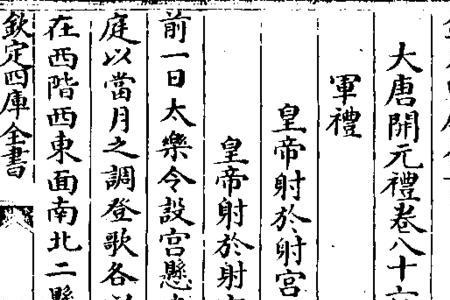 大唐開元禮卷八十六
軍禮
皇帝射於射宮
皇帝射於射
前一日太樂令設宮懸
庭以當月之調登歌各
在西階西東面南北二
欽定四庫全書